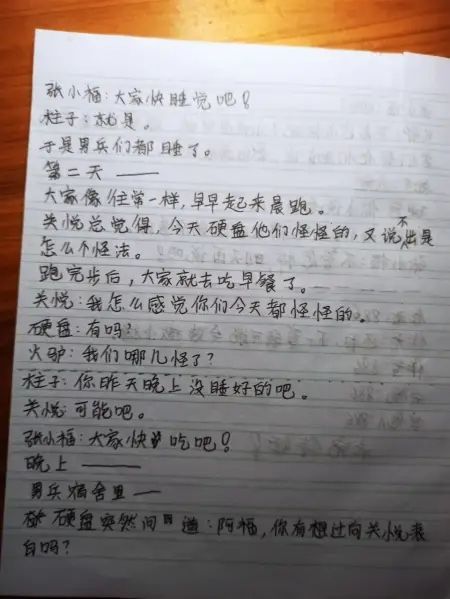 张小福：大家快睡觉吧！
柱子：就是。
于是男兵们都睡了。
第二天 ——
大家像往常一样，早早起来晨跑。
关悦总觉得，今天硬盘他们怪怪的，又说不出是
怎么个怪法。
跑完步后，大家就去吃早餐了。
关悦：我怎么感觉你们今天都怪怪的。
硬盘：有吗？
火驴：我们哪儿怪了？
柱子：你昨天晚上没睡好的吧。
关悦：可能吧。
张小福：大家快吃吧！
晚上 ——
男兵宿舍里 —
硬盘突然问道：阿福，你有想过向关悦表
白吗？